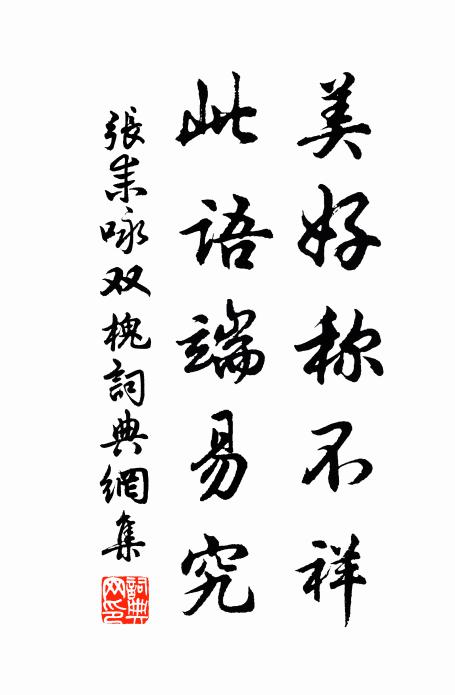 美好称不祥
此语端易究
張耒咏双槐詞典網集
詞典網印